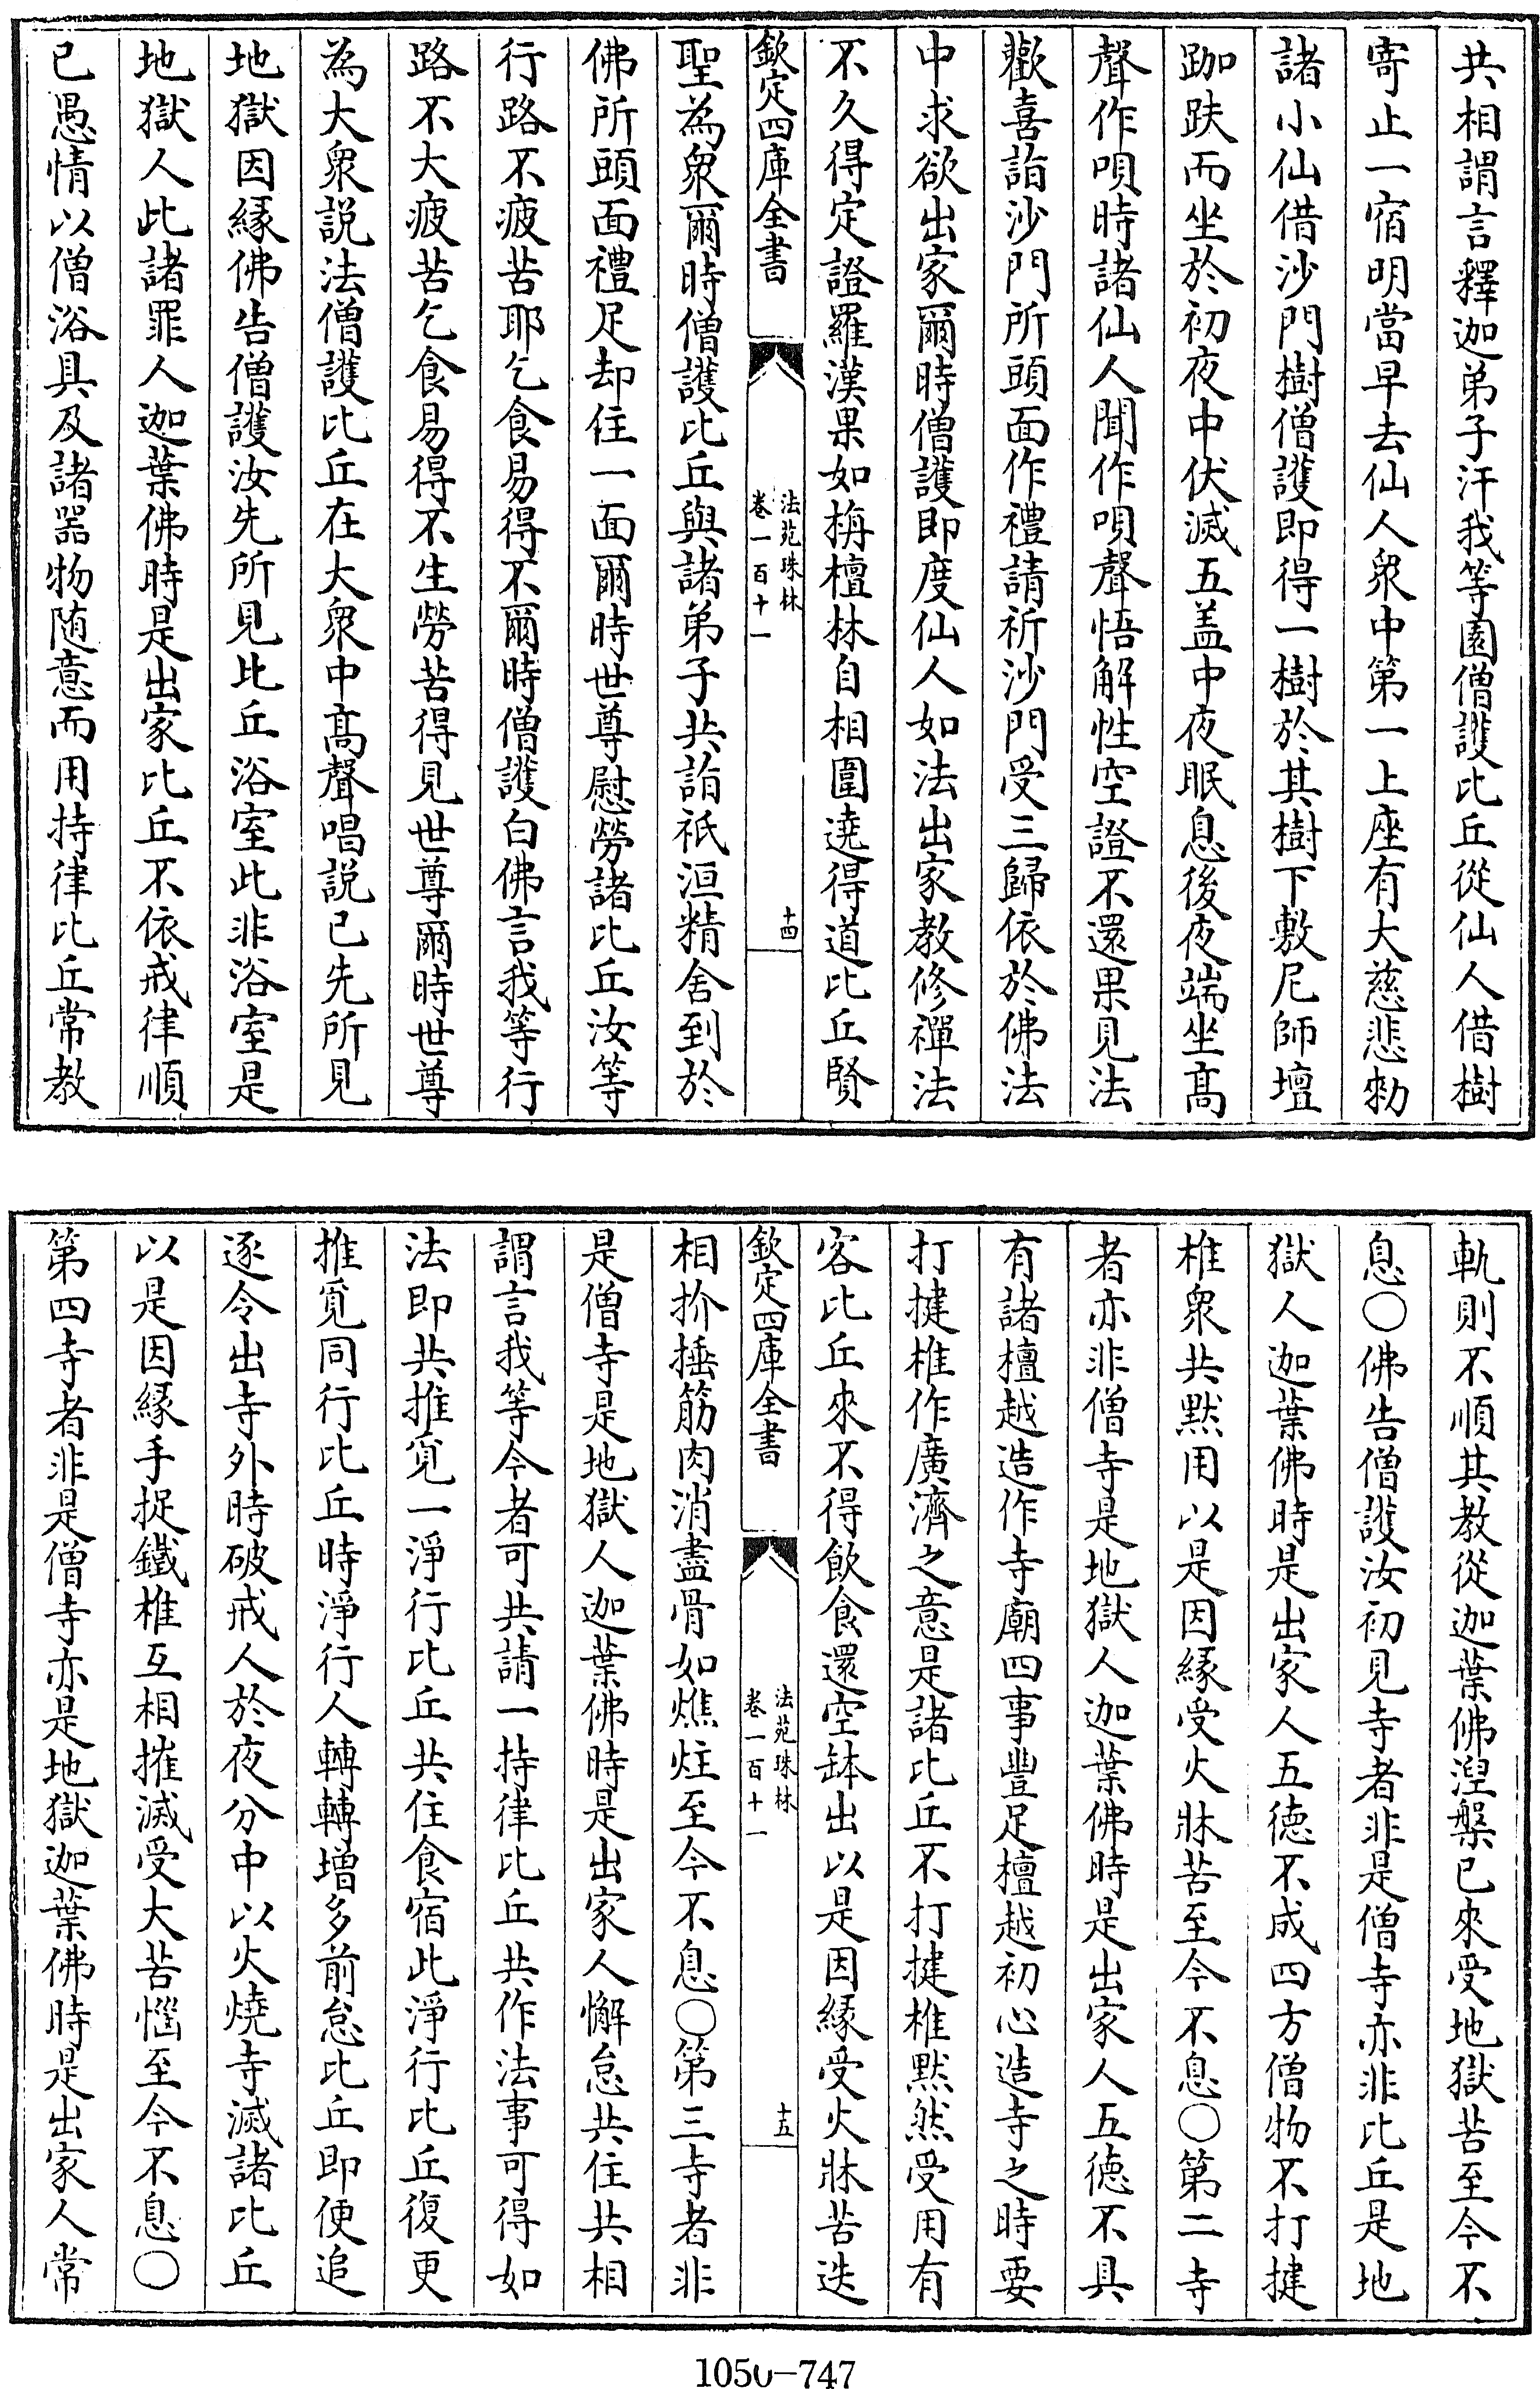 共相謂言釋迦弟子汗我等園僧護比丘從仙人借樹
寄止一宿明當早去仙人衆中第一上座有大慈悲勑
諸小仙借沙門樹僧護即得一樹於其樹下敷尼師壇
跏趺而坐於初夜中伏滅五盖中夜眠息後夜端坐髙
聲作唄時諸仙人聞作唄聲悟解性空證不還果見法
歡喜詣沙門所頭面作禮請祈沙門受三歸依於佛法
中求欲出家爾時僧護即度仙人如法出家教修禪法
不久得定證羅漢果如栴檀林自相圍遶得道比丘賢
欽定四庫全書
法苑珠林
卷一百十一
十四
聖為衆爾時僧護比丘與諸弟子共詣祇洹精舍到於
佛所頭面禮足却住一面爾時世尊慰勞諸比丘汝等
行路不疲苦耶乞食易得不爾時僧護白佛言我等行
路不大疲苦乞食易得不生勞苦得見世尊爾時世尊
為大衆説法僧護比丘在大衆中髙聲唱説已先所見
地獄因緣佛告僧護汝先所見比丘浴室此非浴室是
地獄人此諸罪人迦葉佛時是出家比丘不依戒律順
已愚情以僧浴具及諸器物随意而用持律比丘常教
軌則不順其教從迦葉佛涅槃已來受地獄苦至今不
息○佛告僧護汝初見寺者非是僧寺亦非比丘是地
獄人迦葉佛時是出家人五徳不成四方僧物不打揵
椎衆共黙用以是因緣受火牀苦至今不息○第二寺
者亦非僧寺是地獄人迦葉佛時是出家人五徳不具
有諸檀越造作寺廟四事豐足檀越初心造寺之時要
打揵椎作廣濟之意是諸比丘不打揵椎黙然受用有
客比丘來不得飲食還空缽出以是因緣受火牀苦迭
欽定四庫全書
法苑珠林
卷一百十一
十五
相扴捶筋肉消盡骨如燋炷至今不息○第三寺者非
是僧寺是地獄人迦葉佛時是出家人懈怠共住共相
謂言我等今者可共請一持律比丘共作法事可得如
法即共推覔一淨行比丘共住食宿此淨行比丘復更
推覔同行比丘時淨行人轉轉増多前怠比丘即便追
逐令出寺外時破戒人於夜分中以火燒寺滅諸比丘
以是因緣手捉鐵椎互相摧滅受大苦惱至今不息○
第四寺者非是僧寺亦是地獄迦葉佛時是出家人常
1050-747